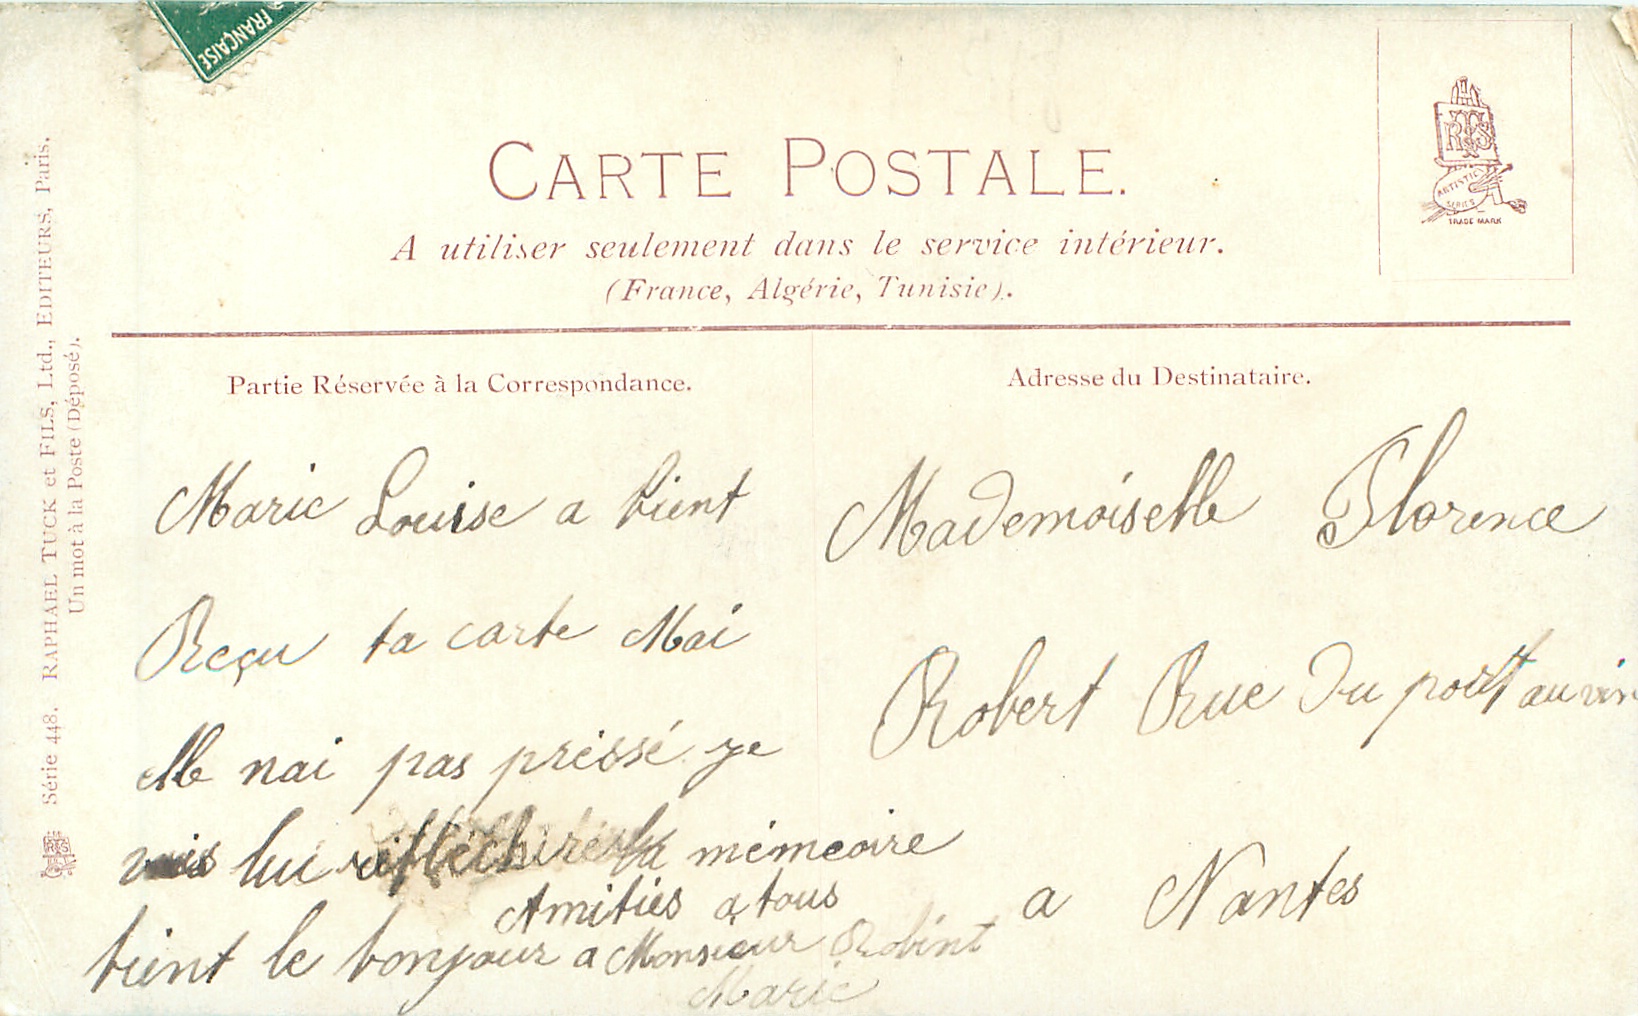 FRANÇAISE
CARTE POSTALE.
A utiliser seulement dans le service intérieur.
(France, Algérie, Tunisie).
RTS
ARTISTIC
SERIES
TRADE MARK
Série 448. RAPHAEL TUCK et FILS, Ltd., EDITEURS, Paris.
Un mot à la Poste (Déposé).
Partie Réservée à la Correspondance.
Marie Louise a bient
Reçu ta carte Mai
elle nai pas préssé je
vais lui la mémeoire
Amitiés a tous
bient le bonjour a Monsieur Robint
Marie
Adresse du Destinataire.
Mademoiselle Florence
Robert Rue Du port au vin
a Nantes